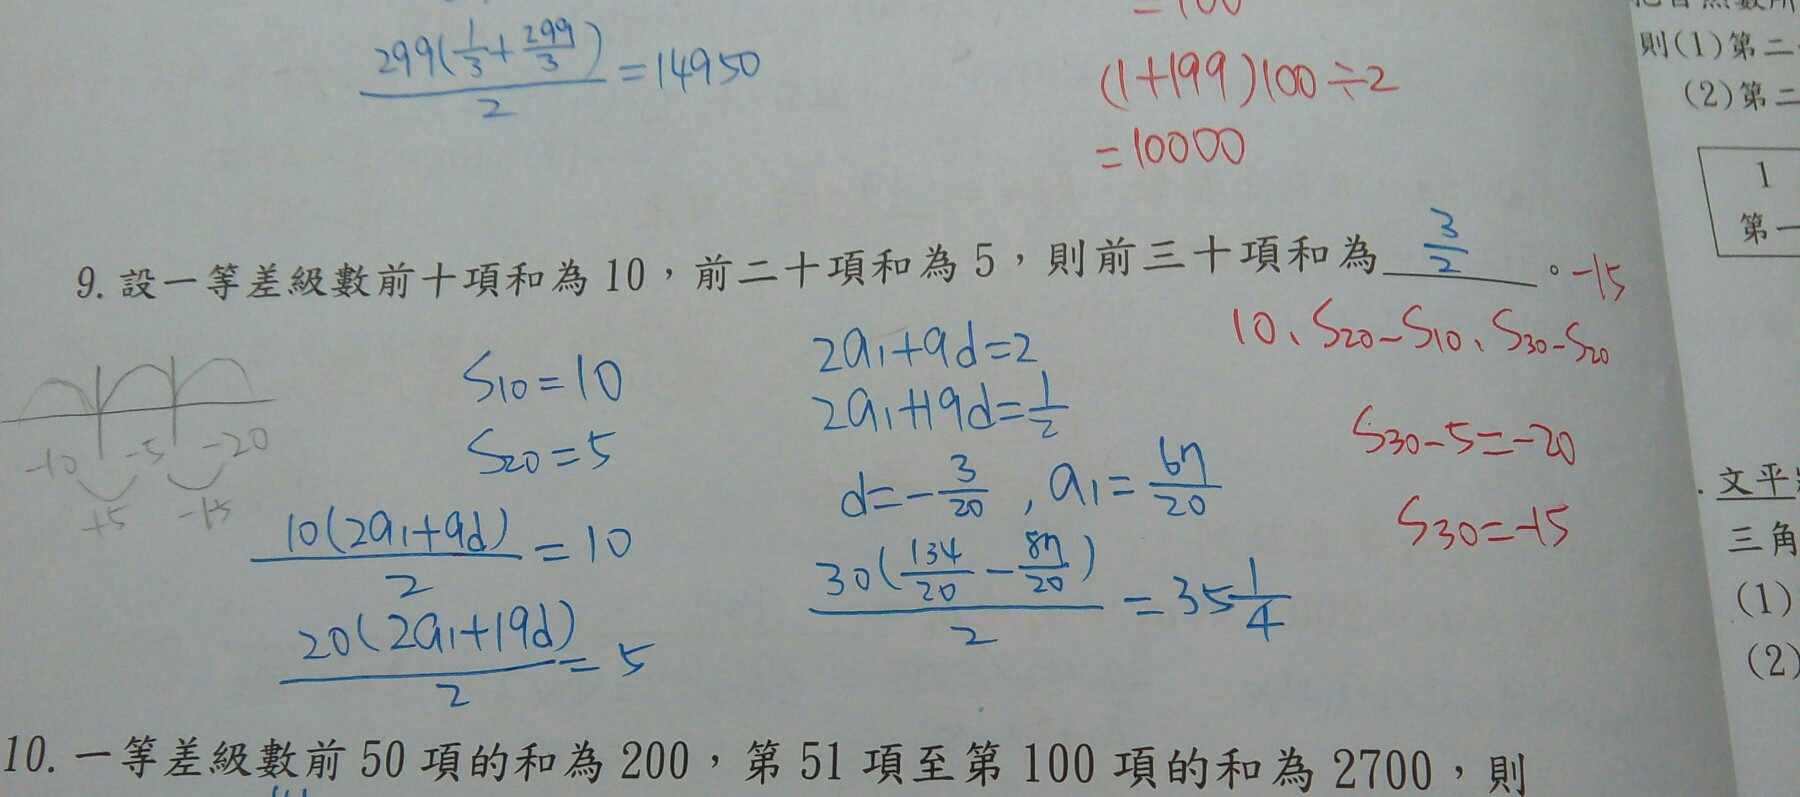 299(1/3+299/3)/2=14950
=100
(1+199)100÷2
=10000
則(1)第二
(2)第二
1
第一
9. 設一等差級數前十項和為 10，前二十項和為 5，則前三十項和為 3/2 。-15
10、S20-S10、S30-S20
S10=10
S20=5
10(2a1+9d)/2=10
20(2a1+19d)/2=5
2a1+9d=2
2a1+19d=1/2
d=-3/20, a1=67/20
30(134/20-87/20)/2=35 1/4
S30-5=-20
S30=-15
-10 -5 -20
+5 -15
文平
三角
(1)
(2)
10. 一等差級數前 50 項的和為 200，第 51 項至第 100 項的和為 2700，則